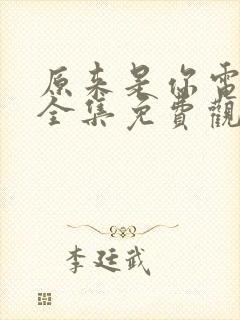 原来是你電
全集免費觀
李廷武